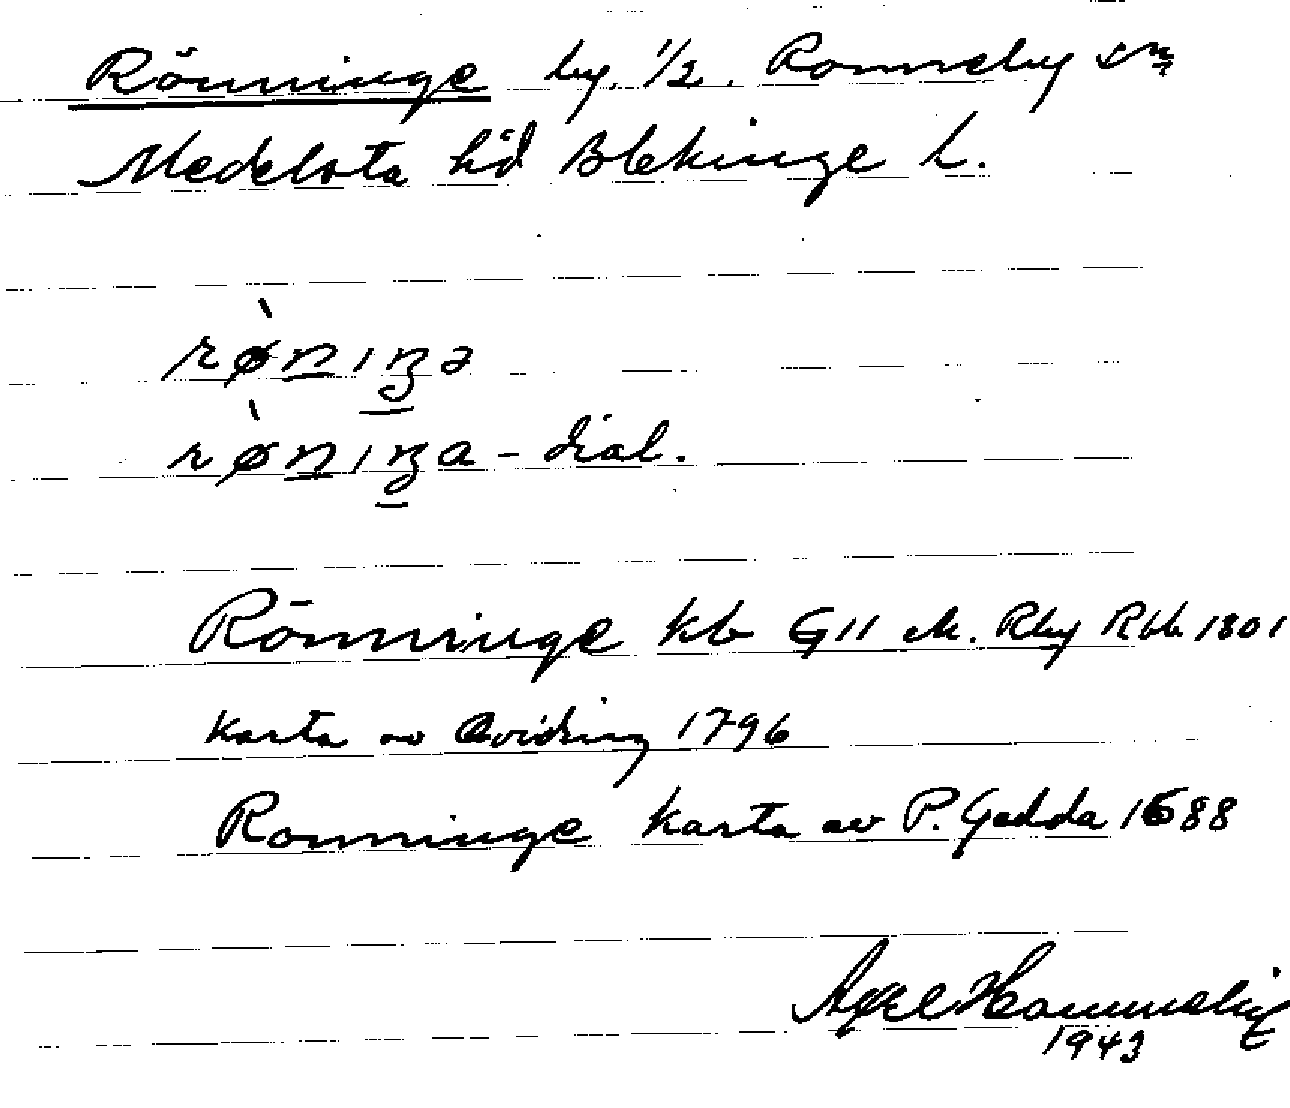 Rönninge by. 1/2. Ronneby sn
Medelsta hd Blekinge L.
rø̀nıŋə
rø̀nıŋa - dial.
Rönninge kb GII Rby Rbl. 1801
Karta av 1796
Ronninge Karta av P. Gedda 1688
Axel
1943